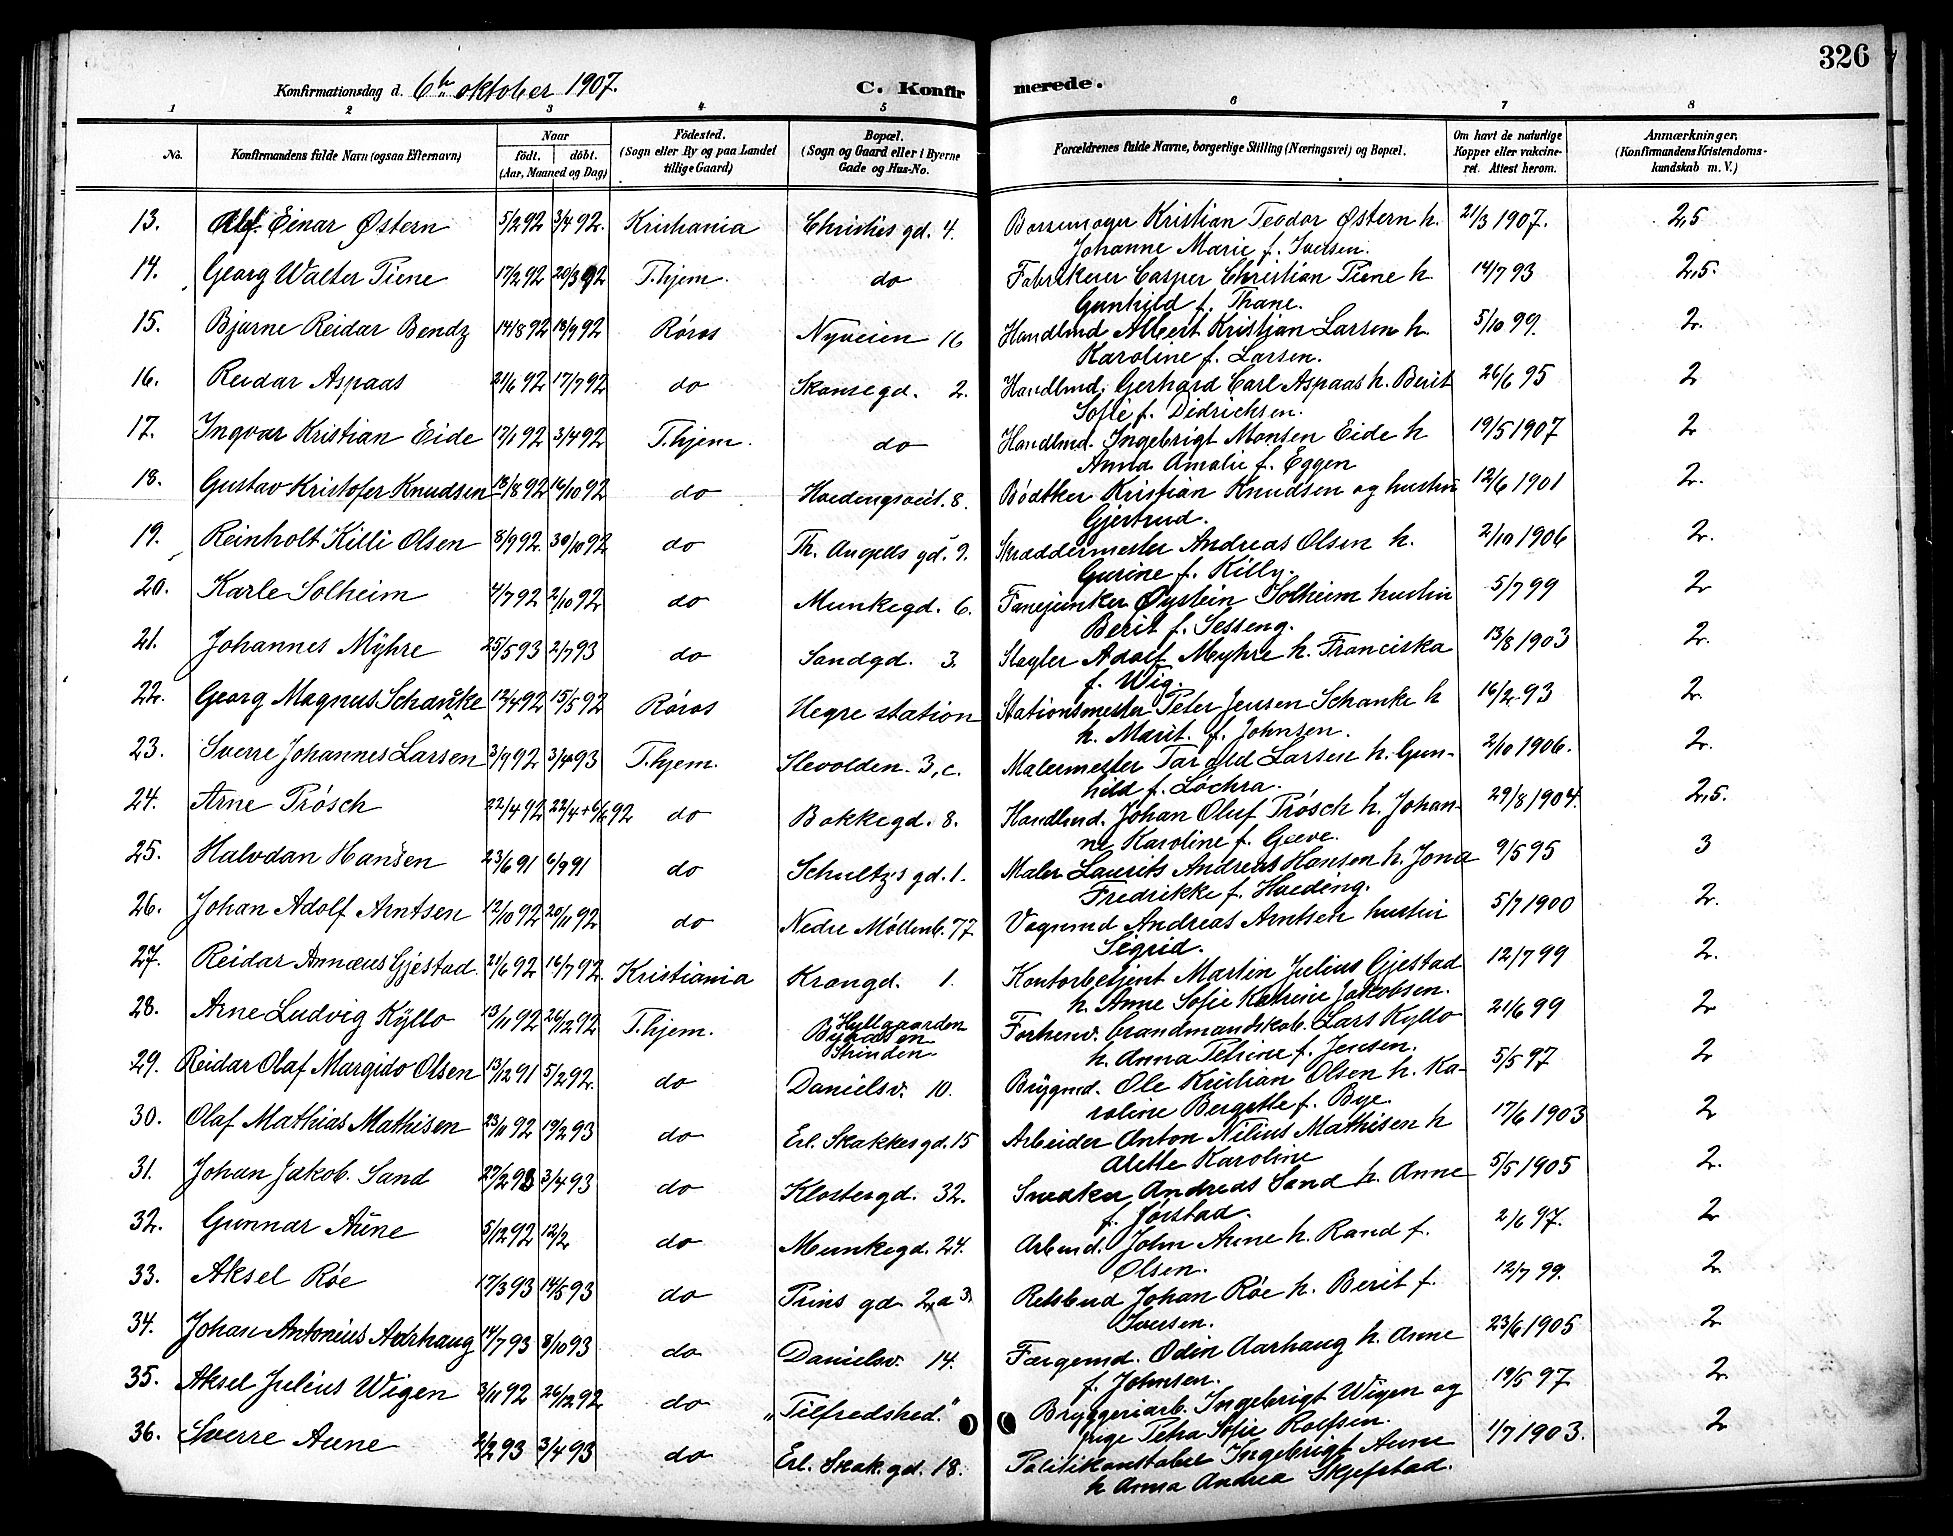 326
Konfirmationsdag d. 6te oktober 1907.
C. Konfirmerede.
1 2 3 4 5 6 7 8
No.
Konfirmandens fulde Navn (ogsaa Efternavn)
Naar
født. døbt.
(Aar, Maaned og Dag)
Fødested.
(Sogn eller By og paa Landet
tillige Gaard)
Bopæl.
(Sogn og Gaard eller i Byerne
Gade og Hus-No.
Forældrenes fulde Navne, borgerlige Stilling (Næringsvei) og Bopæl.
Om havt de naturlige
Kopper eller vakcine-
ret. Attest herom.
Anmærkninger.
(Konfirmandens Kristendoms-
kundskab m. V.)
13. Alf Einar Østern 5/2 92 3/4 92. Kristiania Christies gd. 4. Kristian Teodor Østern h. 21/3 1907. 2,5
Johanne Marie f. Iversen.
14. Georg Walter Piene 17/2 92 20/3 92 T.hjem. do Fabrikeier Casper Christian Piene h 14/7 93 2,5.
Gunhild f. Thane.
15. Bjarne Reidar Bendz 14/8 92 18/9 92 Røros Nyveien 16 Handlmd Albert Kristian Larsen h. 5/10 99. 2.
Karoline f. Larsen.
16. Reidar Aspaas 21/6 92 17/7 92 do Skansegd. 2. Handlmd. Gerhard Carl Aspaas h. Berit 26/6 95 2
Sofie f. Didrichsen.
17. Ingvar Kristian Eide 17/1 92 3/4 92 T.hjem. do Handlmd. Ingebrigt Monsen Eide h 19/5 1907 2
Anna Amalie f. Eggen
18. Gustav Kristofer Knudsen 18/8 92 16/10 92 do Hoedingsveit. 8. Bødtker Kristian Knudsen og hustru 12/6 1901 2.
Gjertrud.
19. Reinholt Killi Olsen 8/9 92. 30/10 92 do Th. Angells gd. 9. Skræddermester Andreas Olsen h. 2/10 1906 2.
Gurine f. Killy.
20. Karle Solheim 4/7 92 2/10 92 do Munkegd. 6. Fanejunker Øystein Solheim hustru 5/7 99 2
Berit f. Sesseng.
21. Johannes Myhre 25/5 93 2/7 93 do Sandgd. 3. Slagter Adolf Myhre h. Franciska 13/8 1903 2.
f. Wig.
22. Georg Magnus Schanke 12/4 92 15/5 92 Røros Hegre station Stationsmester Peter Jensen Schanke h 16/2 93 2.
h. Marit f. Johnsen.
23. Sverre Johannes Larsen 3/9 92 3/4 93 T.hjem. Ilevolden. 3, c. Malermester Tarald Larsen h. Gun- 2/10 1906. 2.
hild f. Løchra.
24. Arne Prösch 22/4 92 22/4 + 6/6 92 do Bakkegd. 8. Handlmd. Johan Oluf Prösch h. Johan- 29/8 1904. 2,5.
ne Karoline f. Greve.
25. Halvdan Hansen 23/6 91 6/9 91 do Schultz's gd. 1. Maler Laurits Andreas Hansen h. Jona 9/5 95 3
Fredrikke f. Hoeding.
26. Johan Adolf Arntsen 12/10 92 20/11 92 do Nedre Møllenb. 77. Vognmd Andreas Arntsen hustru 5/7 1900 2.
Sigrid.
27. Reidar Annæus Gjestad. 21/6 92 16/7 92. Kristiania Krangd. 1. Kontorbetjent Martin Julius Gjestad 12/7 99 2.
h. Anne Sofie Katrine Jakobsen.
28. Arne Ludvig Kyllo 13/11 92 26/12 92 T.hjem. Hyllgaarden
Byaasen
Strinden Forhenv. brandmandskab. Lars Kyllo 21/6 99 2
h. Anna Petrine f. Jensen.
29. Reidar Olaf Margido Olsen 13/12 91 5/2 92. do Danielsv. 10. Brygmd. Ole Kristian Olsen h. Ka- 5/5 97 2
roline Bergitte f. Bye.
30. Olaf Mathias Mathisen 23/11 92 19/2 93 do Erl. Skakkes gd. 15 Arbeider Anton Nilius Mathisen h 17/6 1903 2
Alette Karoline
31. Johan Jakob Sand 27/2 93 3/4 93 do Klostergd. 32. Snedker Andreas Sand h. Anne 5/5 1905 2.
f. Jørstad.
32. Gunnar Aune 5/12 92 12/2 do Munkegd. 24. Arbmd. John Aune h. Rand f. 2/6 97. 2
Olsen.
33. Aksel Røe 17/3 93 14/5 93 do Prins gd. 2, a 3. Retsbud Johan Røe h. Berit f. 12/7 99. 2
Iversen.
34. Johan Antonius Aarhaug 14/7 93 8/10 93 do Danielsv. 14. Færgemd. Odin Aarhaug h. Anne 23/6 1905 2
f. Johnsen.
35. Aksel Julius Wigen 3/11 92 26/12 92 do „Tilfredshed." Bryggeriarb. Ingebrigt Wigen og 19/5 97 2
pige Petra Sofie Rolfsen.
36. Sverre Aune 2/2 93 3/4 93 do Erl. Skak. gd. 18. Politikonstabel Ingebrigt Aune 1/7 1903. 2
h Anna Andrea Skjefstad.